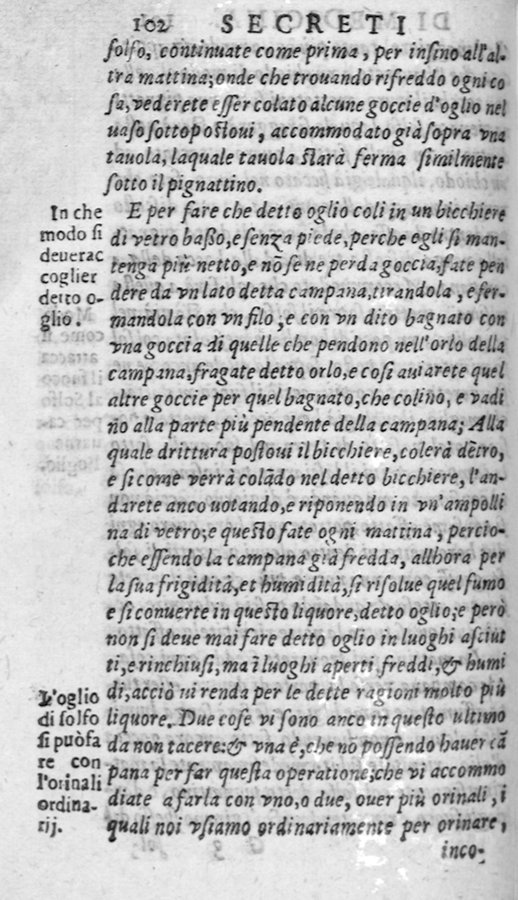 102 SECRETI
solfo, continuate come prima, per insino all'al-
tra mattina; onde che trouando rifreddo ogni co
sa, vederete esser colato alcune goccie d'oglio nel
uaso sottopostoui, accommodato già sopra vna
tauola, laquale tauola starà ferma similmente
sotto il pignattino.
In che
modo si
deuerac
coglier
detto o-
glio.
E per fare che detto oglio coli in un bicchiere
di vetro basso, e senza piede, perche egli si man-
tenga più netto, e nõ se ne perda goccia, fate pen
dere da vn lato detta campana, tirandola, e fer-
mandola con vn filo; e con vn dito bagnato con
vna goccia di quelle che pendono nell'orlo della
campana, fragate detto orlo, e cosi auiarete quel
altre goccie per quel bagnato, che colino, e vadi
no alla parte più pendente della campana; Alla
quale drittura postoui il bicchiere, colerà dẽtro,
e si come verrà colãdo nel detto bicchiere, l'an-
darete anco uotando, e riponendo in vn'ampolli
na di vetro; e questo fate ogni mattina, percio-
che essendo la campana già fredda, allhora per
la sua frigidità, et humidità, si risolue quel fumo
e si conuerte in questo liquore, detto oglio; e però
non si deue mai fare detto oglio in luoghi asciut
ti, e rinchiusi, ma ĩ luoghi aperti freddi, & humi
di, acciò ui renda per le dette ragioni molto più
liquore. Due cose vi sono anco in questo ultimo
da non tacere: & vna è, che nõ possendo hauer cã
pana per far questa operatione; che vi accommo
diate a farla con vno, o due, ouer più orinali, i
quali noi vsiamo ordinariamente per orinare,
L'oglio
di solfo
si può fa
re con
l'orinali
ordina-
rij.
inco-